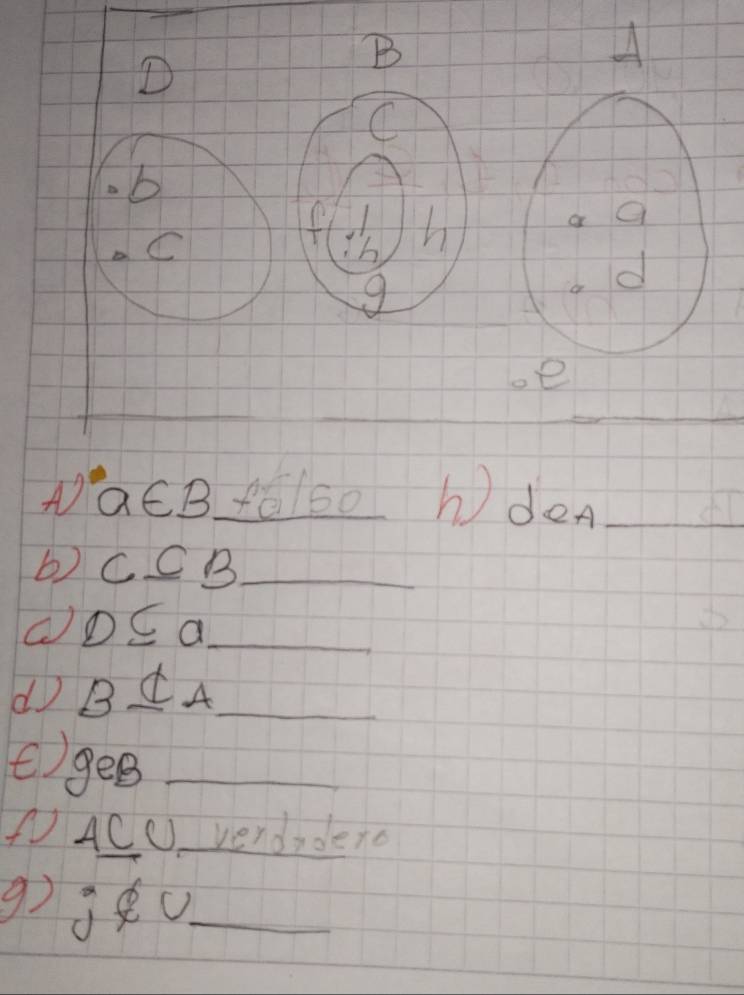 D B A
C
.b
f h a
.c g d
.e
A) a∈B falso h) d∈A
b) C⊆B
c) D⊆a
d) B⊈A
E) g∈B
f) A⊆U verdadero
g) j∉U